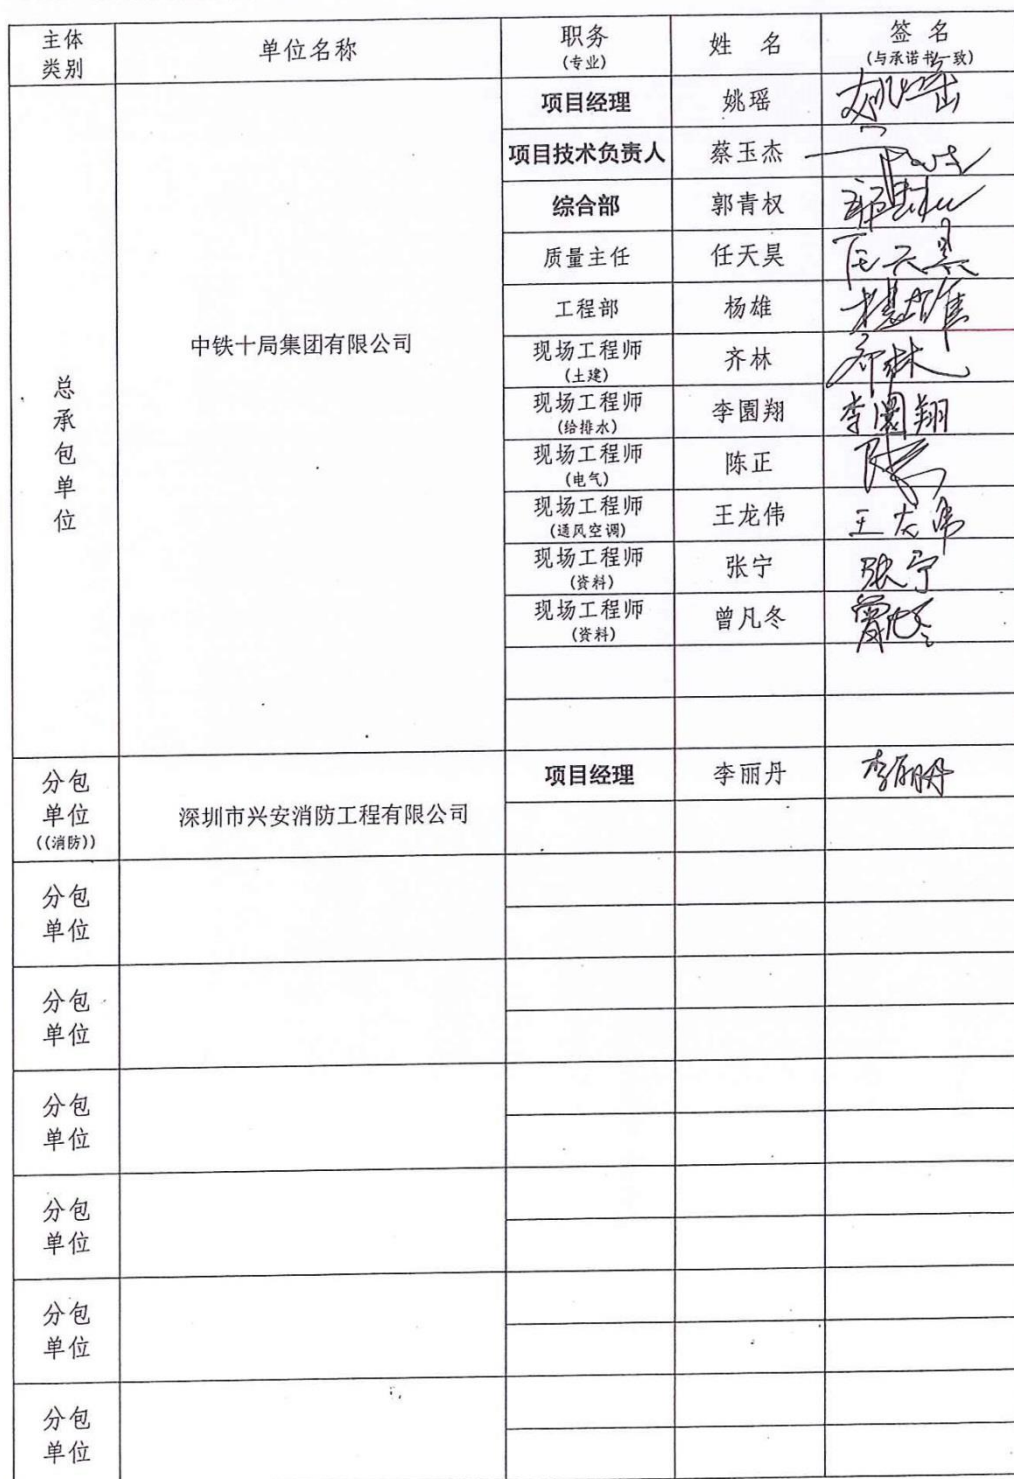 主体
类别
单位名称
职务
(专业)
姓 名
签 名
(与承诺书一致)
总
承
包
单
位
中铁十局集团有限公司
项目经理
姚瑶
项目技术负责人
蔡玉杰
综合部
郭青权
质量主任
任天昊
任天昊
工程部
杨雄
杨雄
现场工程师
(土建)
齐林
齐林
现场工程师
(给排水)
李圜翔
李圜翔
现场工程师
(电气)
陈正
现场工程师
(通风空调)
王龙伟
王龙伟
现场工程师
(资料)
张宁
张宁
现场工程师
(资料)
曾凡冬
曾凡冬
分包
单位
((消防))
深圳市兴安消防工程有限公司
项目经理
李丽丹
李丽丹
分包
单位
分包
单位
分包
单位
分包
单位
分包
单位
分包
单位